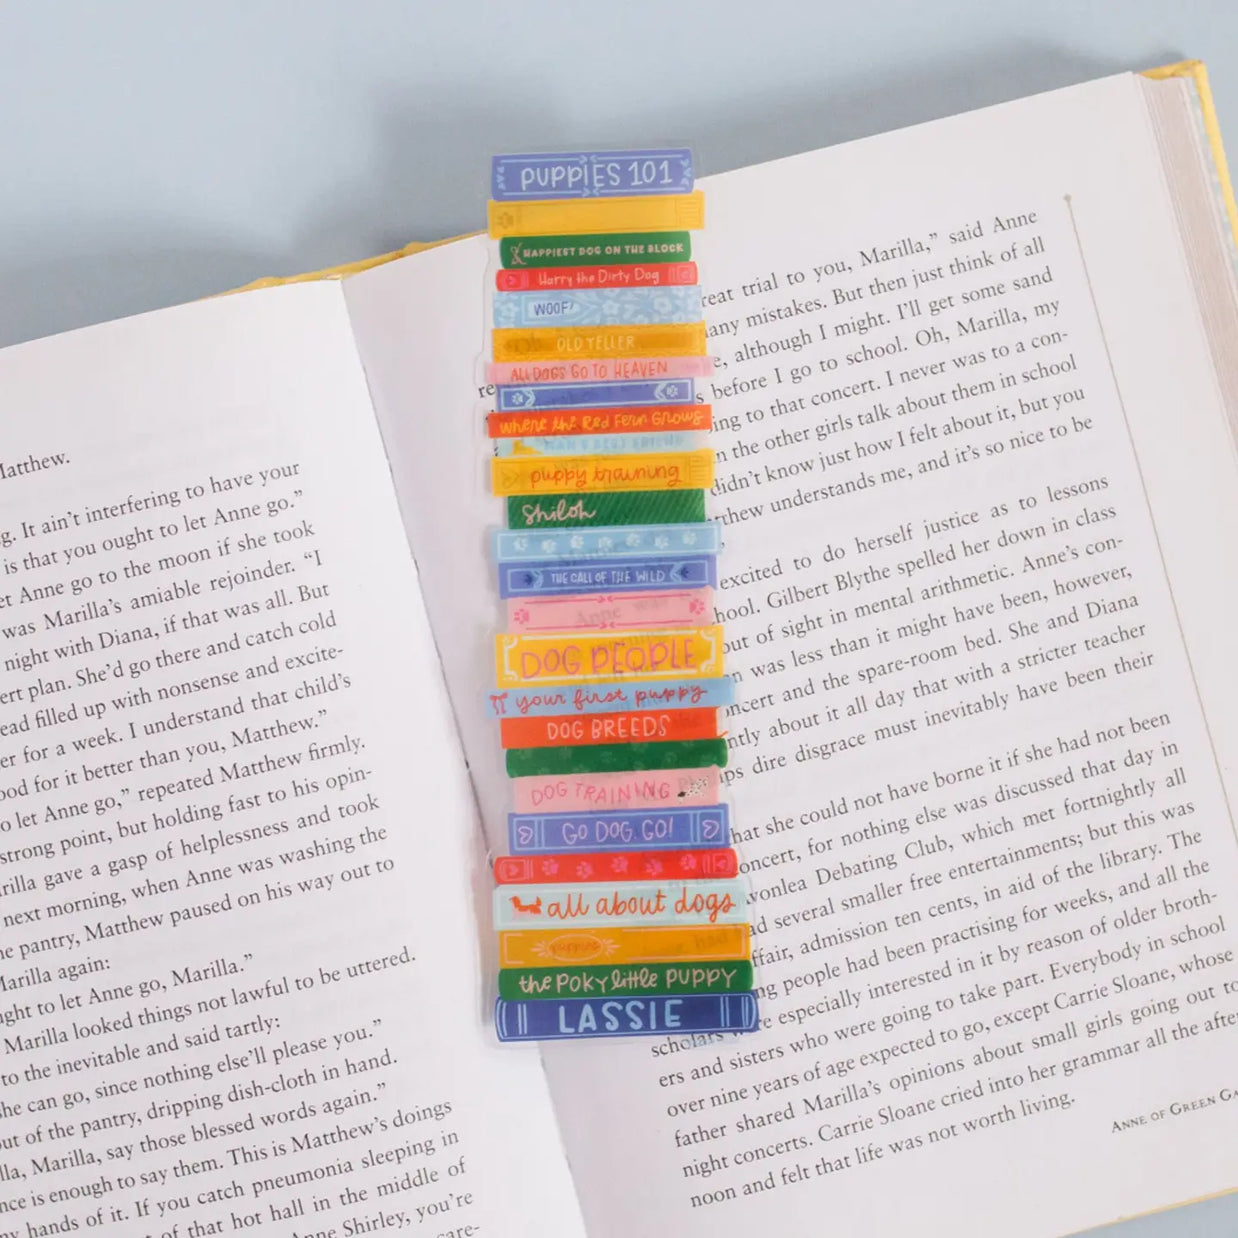 Matthew.
g. It ain't interfering to have your
is that you ought to let Anne go."
et Anne go to the moon if she took
was Marilla's amiable rejoinder. "I
night with Diana, if that was all. But
ert plan. She'd go there and catch cold
ead filled up with nonsense and excite-
er for a week. I understand that child's
ood for it better than you, Matthew."
o let Anne go," repeated Matthew firmly.
strong point, but holding fast to his opin-
rilla gave a gasp of helplessness and took
next morning, when Anne was washing the
e pantry, Matthew paused on his way out to
Marilla again:
ght to let Anne go, Marilla."
Marilla looked things not lawful to be uttered.
to the inevitable and said tartly:
he can go, since nothing else'll please you."
out of the pantry, dripping dish-cloth in hand.
lla, Marilla, say those blessed words again."
nce is enough to say them. This is Matthew's doings
ny hands of it. If you catch pneumonia sleeping in
of that hot hall in the middle of
Anne Shirley, you're
care-
PUPPIES 101
HAPPIEST DOG ON THE BLOCK
Harry the Dirty Dog
WOOF!
OLD YELLER
ALL DOGS GO TO HEAVEN
Where the Red Fern Grows
MAN'S BEST FRIEND
puppy training
Shiloh
THE CALL OF THE WILD
DOG PEOPLE
your first puppy
DOG BREEDS
DOG TRAINING
GO DOG, GO!
all about dogs
puppies
the POKY little PUPPY
LASSIE
reat trial to you, Marilla," said Anne
any mistakes. But then just think of all
e, although I might. I'll get some sand
s before I go to school. Oh, Marilla, my
ing to that concert. I never was to a con-
n the other girls talk about them in school
didn't know just how I felt about it, but you
thew understands me, and it's so nice to be
excited to do herself justice as to lessons
hool. Gilbert Blythe spelled her down in class
out of sight in mental arithmetic. Anne's con-
n was less than it might have been, however,
ncert and the spare-room bed. She and Diana
ntly about it all day that with a stricter teacher
ps dire disgrace must inevitably have been their
hat she could not have borne it if she had not been
oncert, for nothing else was discussed that day in
vonlea Debating Club, which met fortnightly all
ad several smaller free entertainments; but this was
ffair, admission ten cents, in aid of the library. The
ng people had been practising for weeks, and all the
scholars were especially interested in it by reason of older broth-
ers and sisters who were going to take part. Everybody in school
over nine years of age expected to go, except Carrie Sloane, whose
father shared Marilla's opinions about small girls going out to
night concerts. Carrie Sloane cried into her grammar all the after
noon and felt that life was not worth living.
ANNE OF GREEN GA